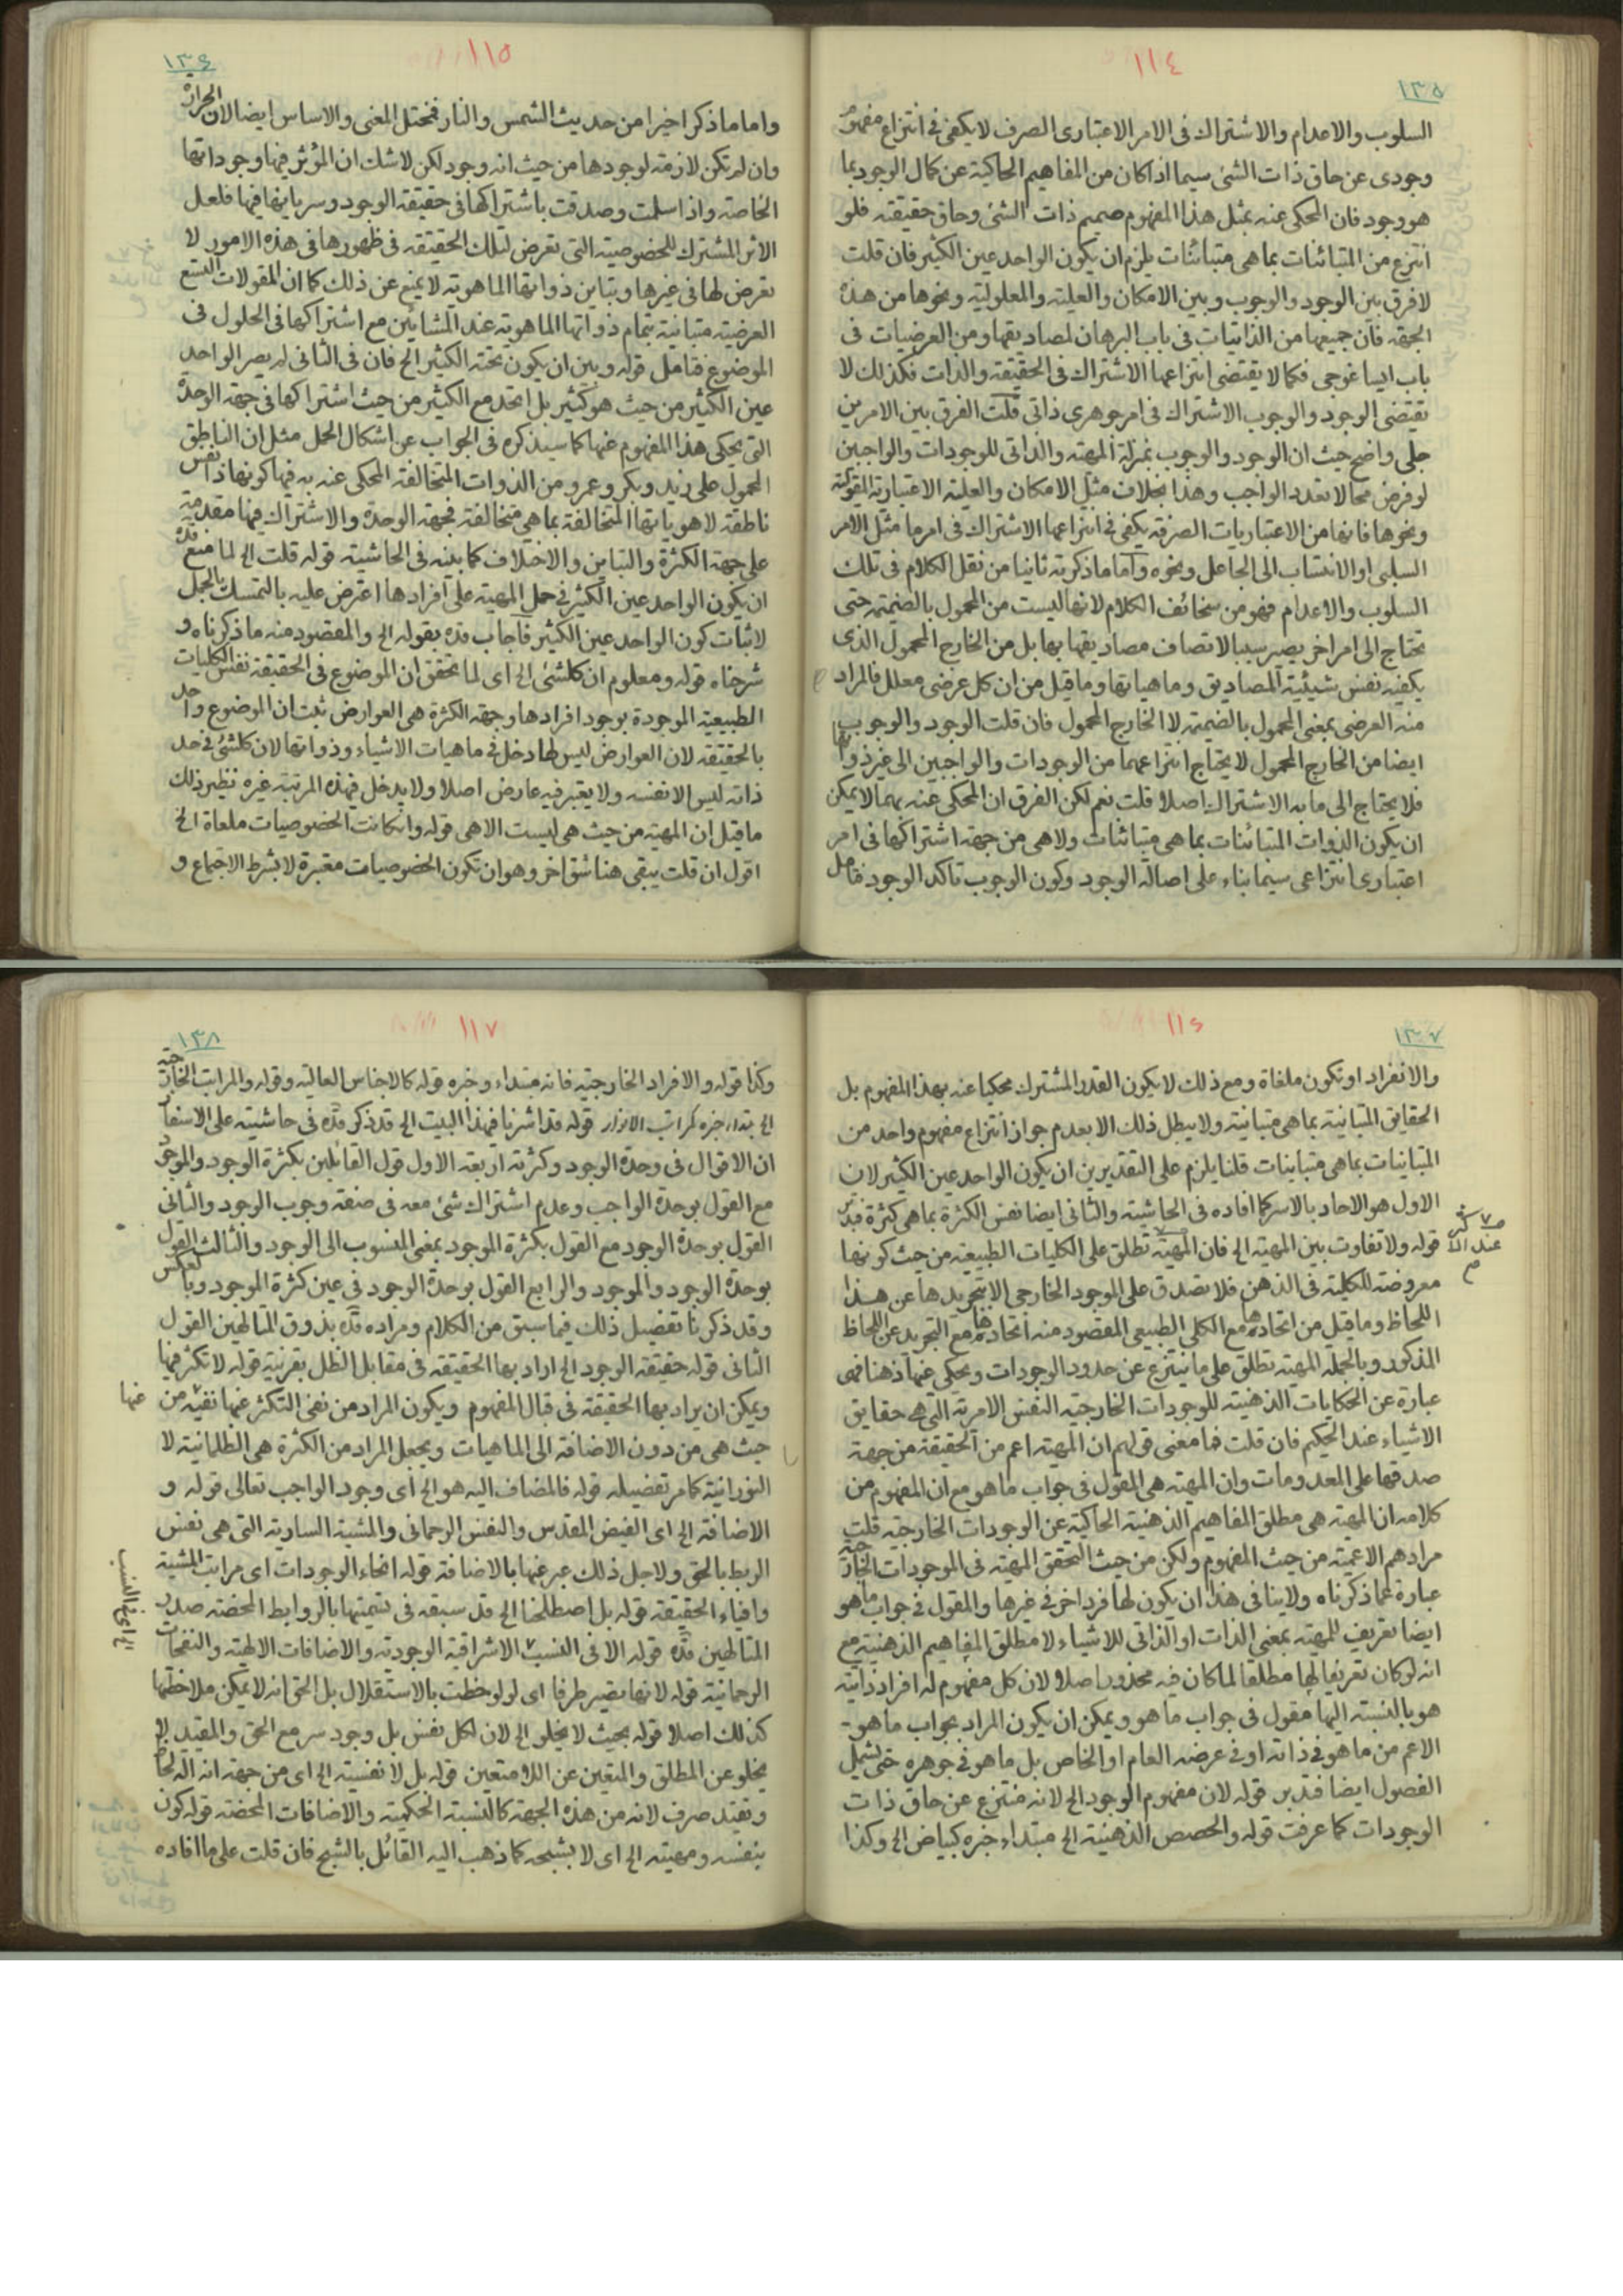 ١١٤
١٣٥
السلوب والاعدام والاشتراك فى الامر الاعتبارى الصرف لا يكفى فى انتزاع مفهوم
وجودى عن حاق ذات الشئ سيما اذا كان من المفاهيم الحاكية عن كمال الوجود بما
هو وجود فان المحكى عنه بمثل هذا المفهوم صميم ذات الشئ وحاق حقيقته فلو
انتزع من المتبائنات بما هى متبائنات يلزم ان يكون الواحد عين الكثير فان قلت
لا فرق بين الوجود والوجوب وبين الامكان والعلية والمعلولية ونحوها من هذه
الجهة فان جميعها من الذاتيات فى باب البرهان لمصاديقها ومن العرضيات فى
باب ايساغوجى فكما لا يقتضى انتزاعها الاشتراك فى الحقيقة والذات فكذلك لا
تقتضى الوجود والوجوب الاشتراك فى امر جوهرى ذاتى قلت الفرق بين الامرين
جلى واضح حيث ان الوجود والوجوب بمنزلة المهية والذاتى للوجودات والواجبين
لو فرض محالا تعدد الواجب وهذا بخلاف مثل الامكان والعلية الاعتبارية المقولية
ونحوها فانها من الاعتباريات الصرفة يكفى فى انتزاعها الاشتراك فى امر ما مثل الامر
السلبى او الانتساب الى الجاعل ونحوه واما ما ذكرته ثانيا من نقل الكلام فى تلك
السلوب والاعدام فهو من سخائف الكلام لانها ليست من المحمول بالضميمة حتى
تحتاج الى امر اخر يصير سببا لاتصاف مصاديقها بها بل من الخارج المحمول الذى
يكفيه نفس شيئية المصاديق وماهياتها وما قيل من ان كل عرضى معلل فالمراد
منه العرضى بمعنى المحمول بالضميمة لا الخارج المحمول فان قلت الوجود والوجوب
ايضا من الخارج المحمول لا يحتاج انتزاعهما من الوجودات والواجبين الى غير ذواتها
فلا يحتاج الى ما به الاشتراك اصلا قلت نعم لكن الفرق ان المحكى عنه بهما لا يمكن
ان يكون الذوات المتبائنات بما هى متبائنات ولا هى من جهة اشتراكها فى امر
اعتبارى انتزاعى سيما بناء على اصالة الوجود وكون الوجوب تاكد الوجود فتامل
١١٥
١٣٦
واما ما ذكر اخيرا من حديث الشمس والنار فمختل المغنى والاساس ايضا لان الحرارة
وان لم تكن لازمة لوجودها من حيث انه وجود لكن لا شك ان المؤثر فيها وجوداتها
الخاصة واذا سلمت وصدقت باشتراكها فى حقيقة الوجود وسريانها فيها فلعل
الاثر المشترك للخصوصية التى تعرض لتلك الحقيقة فى ظهورها فى هذه الامور لا
تعرض لها فى غيرها وتباين ذواتها الماهوية لا يمنع عن ذلك كما ان المقولات التسع
العرضية متبانية بتمام ذواتها الماهوية عند المشائين مع اشتراكها فى الحلول فى
الموضوع فتامل قوله وبين ان يكون تحته الكثير الخ فان فى الثانى لم يصر الواحد
عين الكثير من حيث هو كثير بل اتحد مع الكثير من حيث اشتراكها فى جهة الوحدة
التى يحكى هذا المفهوم عنها كما سيذكره فى الجواب عن اشكال الحمل مثل ان الناطق
المحمول على زيد وبكر وعمرو من الذوات المتخالفة المحكى عنه به فيها كونها ذا نفس
ناطقة لا هوياتها المتخالفة بما هى متخالفة فجهة الوحدة والاشتراك فيها مقدمة
على جهة الكثرة والتباين والاختلاف كما بينه فى الحاشية قوله قلت الخ لما منع قده
ان يكون الواحد عين الكثير فى حمل المهية على افرادها اعترض عليه بالتمسك بالحمل
لاثبات كون الواحد عين الكثير فاجاب قده بقوله الخ والمقصود منه ما ذكرناه و
شرحناه قوله ومعلوم ان كلشئ الخ اى لما تحقق ان الموضوع فى الحقيقة نفس الكليات
الطبيعية الموجودة بوجود افرادها وجهة الكثرة هى العوارض ثبت ان الموضوع واحد
بالحقيقة لان العوارض ليس لها دخل فى ماهيات الاشياء وذواتها لان كلشئ فى حد
ذاته ليس الا نفسه ولا يعتبر فيه عارض اصلا ولا يدخل فى هذه المرتبة غيره نظير ذلك
ما قيل ان المهية من حيث هى ليست الا هى قوله وان كانت الخصوصيات ملغاة الخ
اقول ان قلت يبقى هنا شق اخر وهو ان تكون الخصوصيات معتبرة لا بشرط الاجتماع و
١١٦
١٣٧
والانفراد او تكون ملغاة ومع ذلك لا يكون القدر المشترك محكيا عنه بهذا المفهوم بل
الحقايق المتبانية بما هى متبانية ولا يبطل ذلك الا بعدم جواز انتزاع مفهوم واحد من
المتبانيات بما هى متباينات قلنا يلزم على التقديرين ان يكون الواحد عين الكثير لان
الاول هو الاحاد بالاسر كما افاده فى الحاشية والثانى ايضا نفس الكثرة بما هى كثرة فتدبر
قوله ولا تفاوت بين المهية الخ فان المهية تطلق على الكليات الطبيعية من حيث كونها
معروضة للكلية فى الذهن فلا تصدق على الموجود الخارجى الا بتجريدها عن هذا
اللحاظ وما قيل من اتحادها مع الكلى الطبيعى المقصود منه اتحادها مع التجريد عن اللحاظ
المذكور وبالجملة المهية تطلق على ما ينتزع عن حدود الوجودات ويحكى عنها ذهنا فهى
عبارة عن الحكايات الذهنية للوجودات الخارجية النفس الامرية التى هى حقايق
الاشياء عند الحكيم فان قلت فما معنى قولهم ان المهية اعم من الحقيقة من جهة
صدقها على المعدومات وان المهية هى المقول فى جواب ما هو مع ان المفهوم من
كلامه ان المهية هى مطلق المفاهيم الذهنية الحاكية عن الوجودات الخارجية قلت
مرادهم الاعمية من حيث المفهوم ولكن من حيث التحقق المهية فى الموجودات الخارجية
عبارة عما ذكرناه ولا ينافى هذا ان يكون لها فرد اخر فى غيرها والمقول فى جواب ما هو
ايضا تعريف للمهية بمعنى الذات او الذاتى للاشياء لا مطلق المفاهيم الذهنية مع
انه لو كان تعريفا لها مطلقا لما كان فيه محذورا اصلا لان كل مفهوم له افراد ذاتية
هو بالنسبة اليها مقول فى جواب ما هو ويمكن ان يكون المراد بجواب ما هو
الاعم من ما هو فى ذاته او فى عرضه العام او الخاص بل ما هو فى جوهره حتى يشمل
الفصول ايضا فتدبر قوله لان مفهوم الوجود الخ لانه منتزع عن حاق ذات
الوجودات كما عرفت قوله والحصص الذهنية الخ مبتداء خبره كبياض الخ وكذا
١١٧
١٣٨
وكذا قوله والافراد الخارجية فانه مبتداء وخبره قوله كالاجناس العالية وقوله والمراتب الخارجية
الخ مبتداء خبره كمراتب الانوار قوله قد اشرنا فهذا البيت الخ قد ذكر قده فى حاشيته على الاسفار
ان الاقوال فى وحدة الوجود وكثرته اربعة الاول قول القائلين بكثرة الوجود والموجود
مع القول بوحدة الواجب وعدم اشتراك شئ معه فى صفة وجوب الوجود والثانى
القول بوحدة الوجود مع القول بكثرة الموجود بمعنى المنسوب الى الوجود والثالث القول
بوحدة الوجود والموجود والرابع القول بوحدة الوجود فى عين كثرة الموجود وبالعكس
وقد ذكرنا تفصيل ذلك فيما سبق من الكلام ومراده قده بذوق المتالهين القول
الثانى قوله حقيقة الوجود الخ اراد بها الحقيقة فى مقابل الظل بقرينة قوله لا تكثر فيها
ويمكن ان يراد بها الحقيقة فى قبال المفهوم ويكون المراد من نفى التكثر عنها نفيه من
عنها
حيث هى من دون الاضافة الى الماهيات ويجعل المراد من الكثرة هى الظلمانية لا
النورانية كما مر تفصيله قوله فالمضاف اليه هو الخ اى وجود الواجب تعالى قوله و
الاضافة الخ اى الفيض المقدس والنفس الرحمانى والمشية السارية التى هى نفس
الربط بالحق ولاجل ذلك عبر عنها بالاضافة قوله انحاء الوجودات اى مراتب المشية
وافياء الحقيقة قوله بل اصطلحنا الخ قد سبقه فى تسميتها بالروابط المحضة صدر
المتالهين قده قوله الا فى النسب الاشراقية الوجودية والاضافات الالهية والنفحات
الرحمانية قوله لانها تصير طرفا اى لو لوحظت بالاستقلال بل الحق انه لا يمكن ملاحظتها
كذلك اصلا قوله بحيث لا يخلو الخ لان لكل نفس بل وجود سر مع الحق والمقيد لا
يخلو عن المطلق والمتعين عن اللا متعين قوله بل لا نفسية الخ اى من جهة انه الة لحاظ
وتقيد صرف لانه من هذه الجهة كالنسبة الحكمية والاضافات المحضة قوله كون
بنفسه ومهيته الخ اى لا بشبحه كما ذهب اليه القائل بالشبح فان قلت على ما افاده